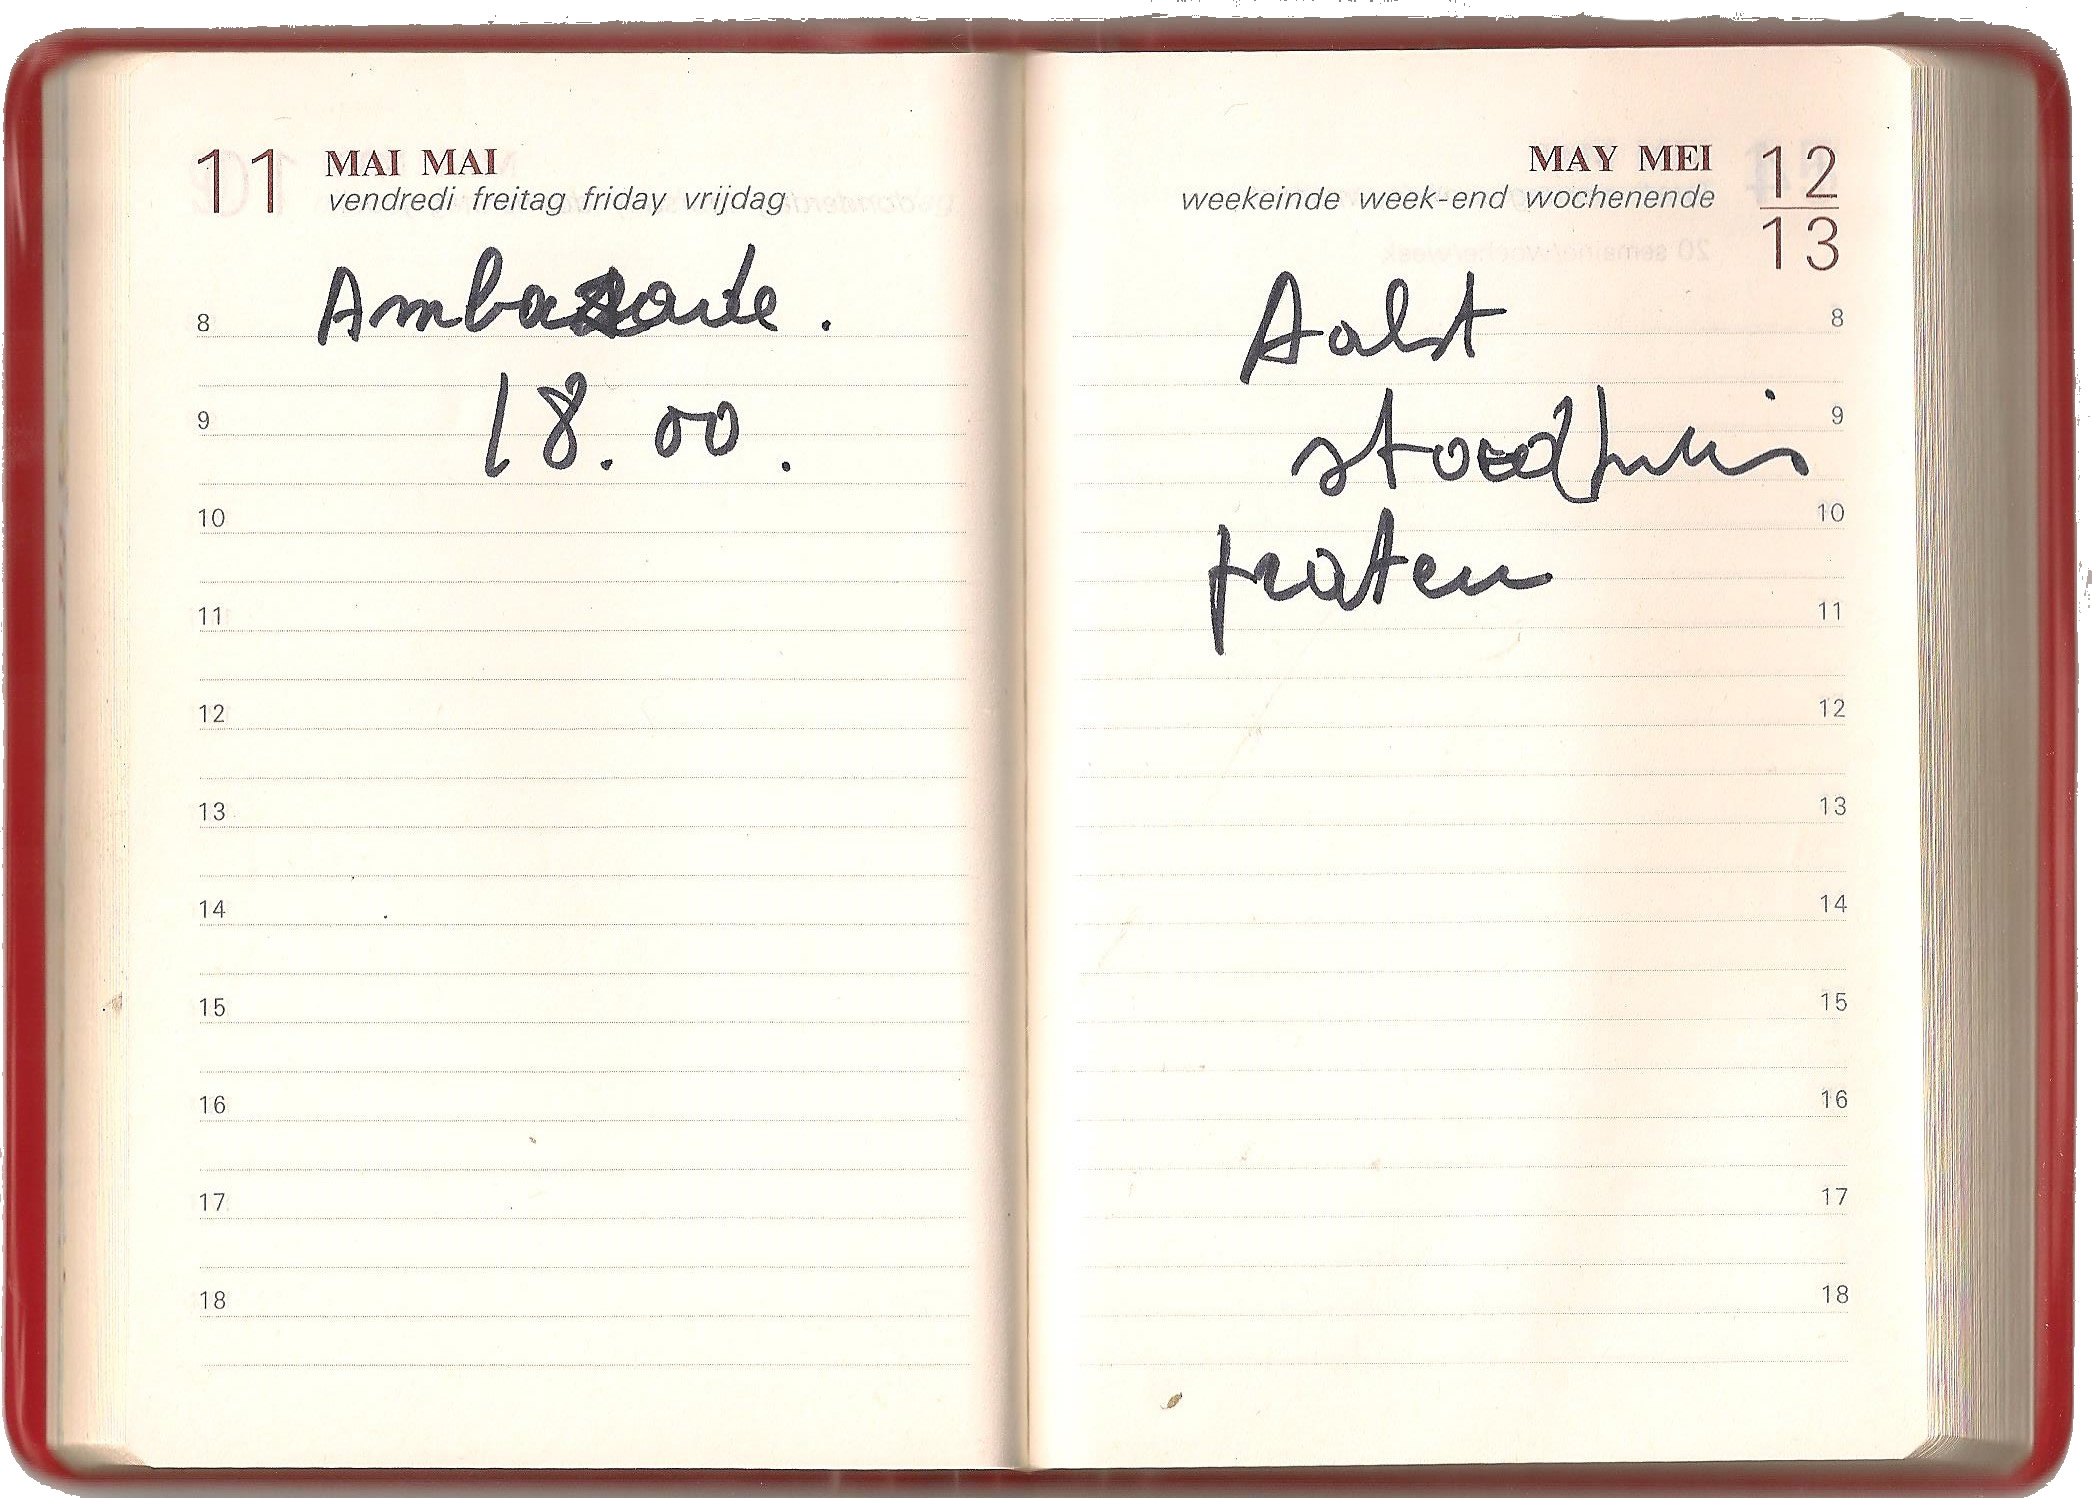 11 MAI MAI
vendredi freitag friday vrijdag
Ambassade.
18.00.
8
9
10
11
12
13
14
15
16
17
18
MAY MEI 12
weekeinde week-end wochenende
13
Aalst
stoedhuis
praten
8
9
10
11
12
13
14
15
16
17
18